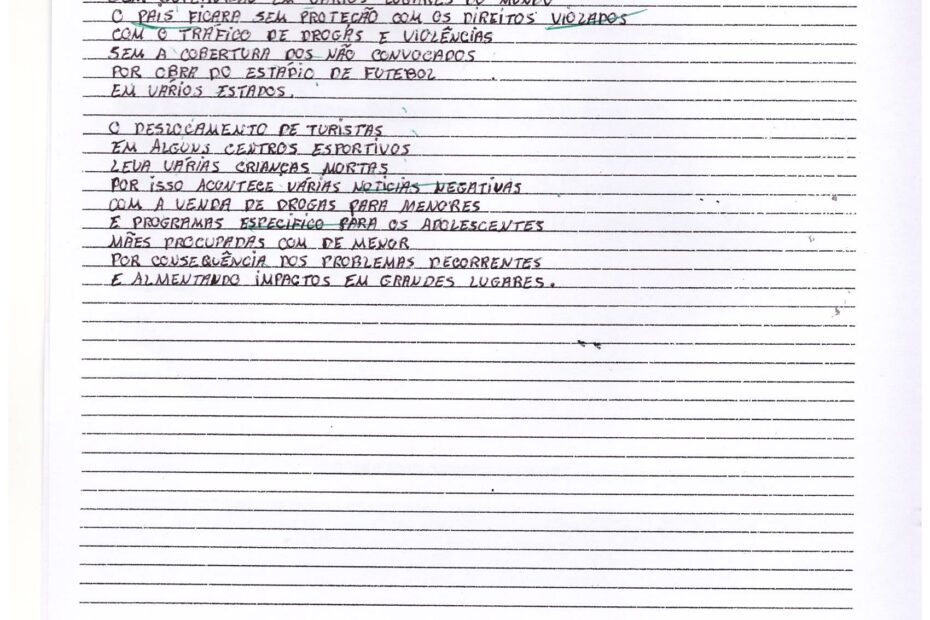 EM VÁRIOS LUGARES DO MUNDO
O PAÍS FICARA SEM PROTEÇÃO COM OS DIREITOS VIOLADOS
COM O TRÁFICO DE DROGAS E VIOLÊNCIAS
SEM A COBERTURA DOS NÃO CONVOCADOS
POR OBRA DO ESTÁDIO DE FUTEBOL
EM VÁRIOS ESTADOS.
O DESLOCAMENTO DE TURISTAS
EM ALGUNS CENTROS ESPORTIVOS
LEVA VÁRIAS CRIANÇAS MORTAS
POR ISSO ACONTECE VÁRIAS NOTICIAS NEGATIVAS
COM A VENDA DE DROGAS PARA MENORES
E PROGRAMAS ESPECIFICO PARA OS ADOLESCENTES
MÃES PROCUPADAS COM DE MENOR
POR CONSEQUÊNCIA DOS PROBLEMAS DECORRENTES
E ALMENTANDO IMPACTOS EM GRANDES LUGARES.